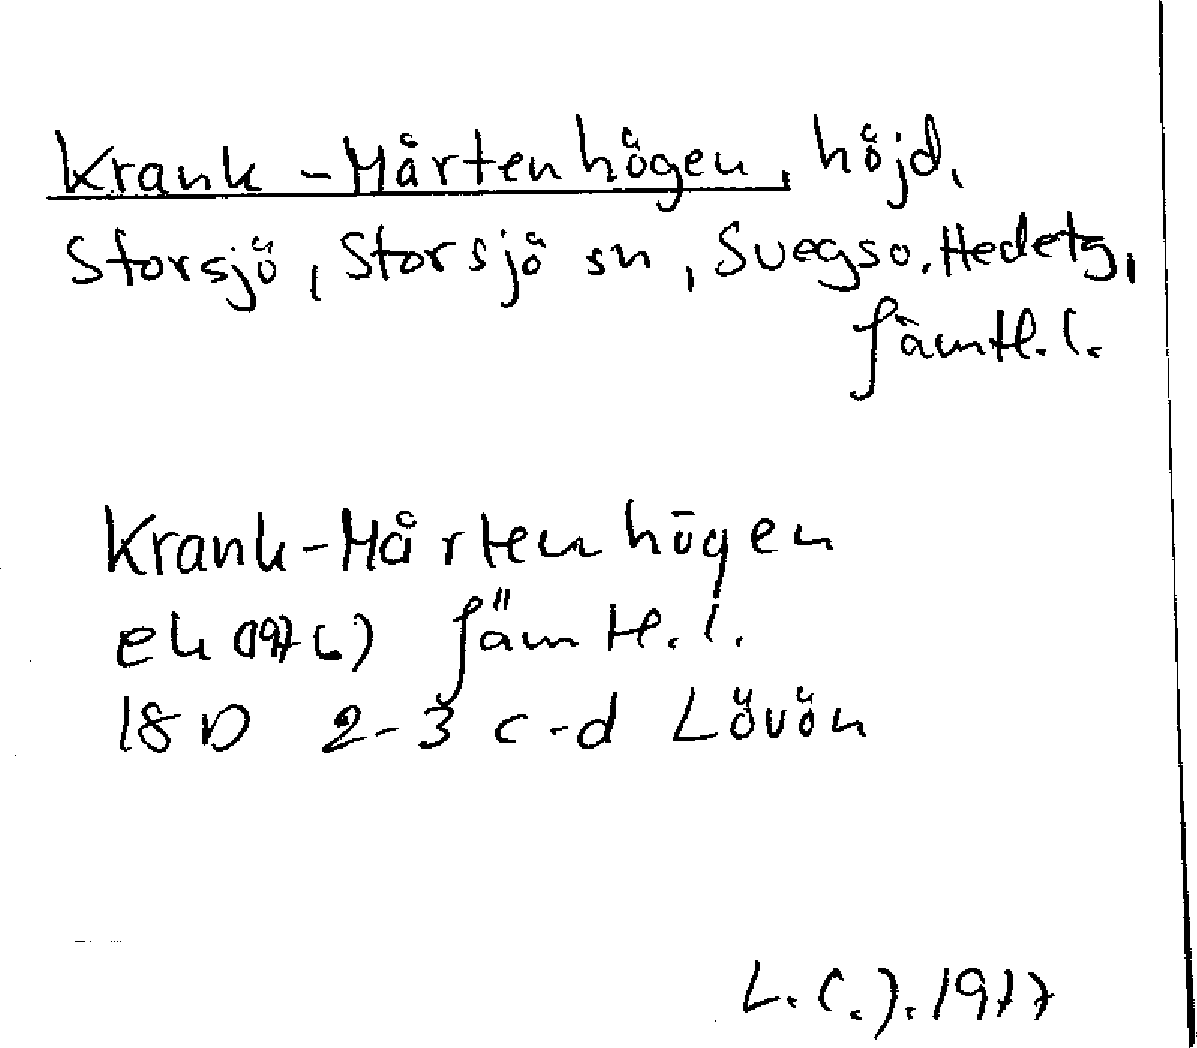 Krank-Mårtenhögen, höjd,
Storsjö, Storsjö sn, Svegs o. Hedetg,
Jämtl. l.
Krank-Mårtenhögen
ek (1976) Jämtl. l.
18 D 2-3 c-d Lövön
L.C.J. 1977